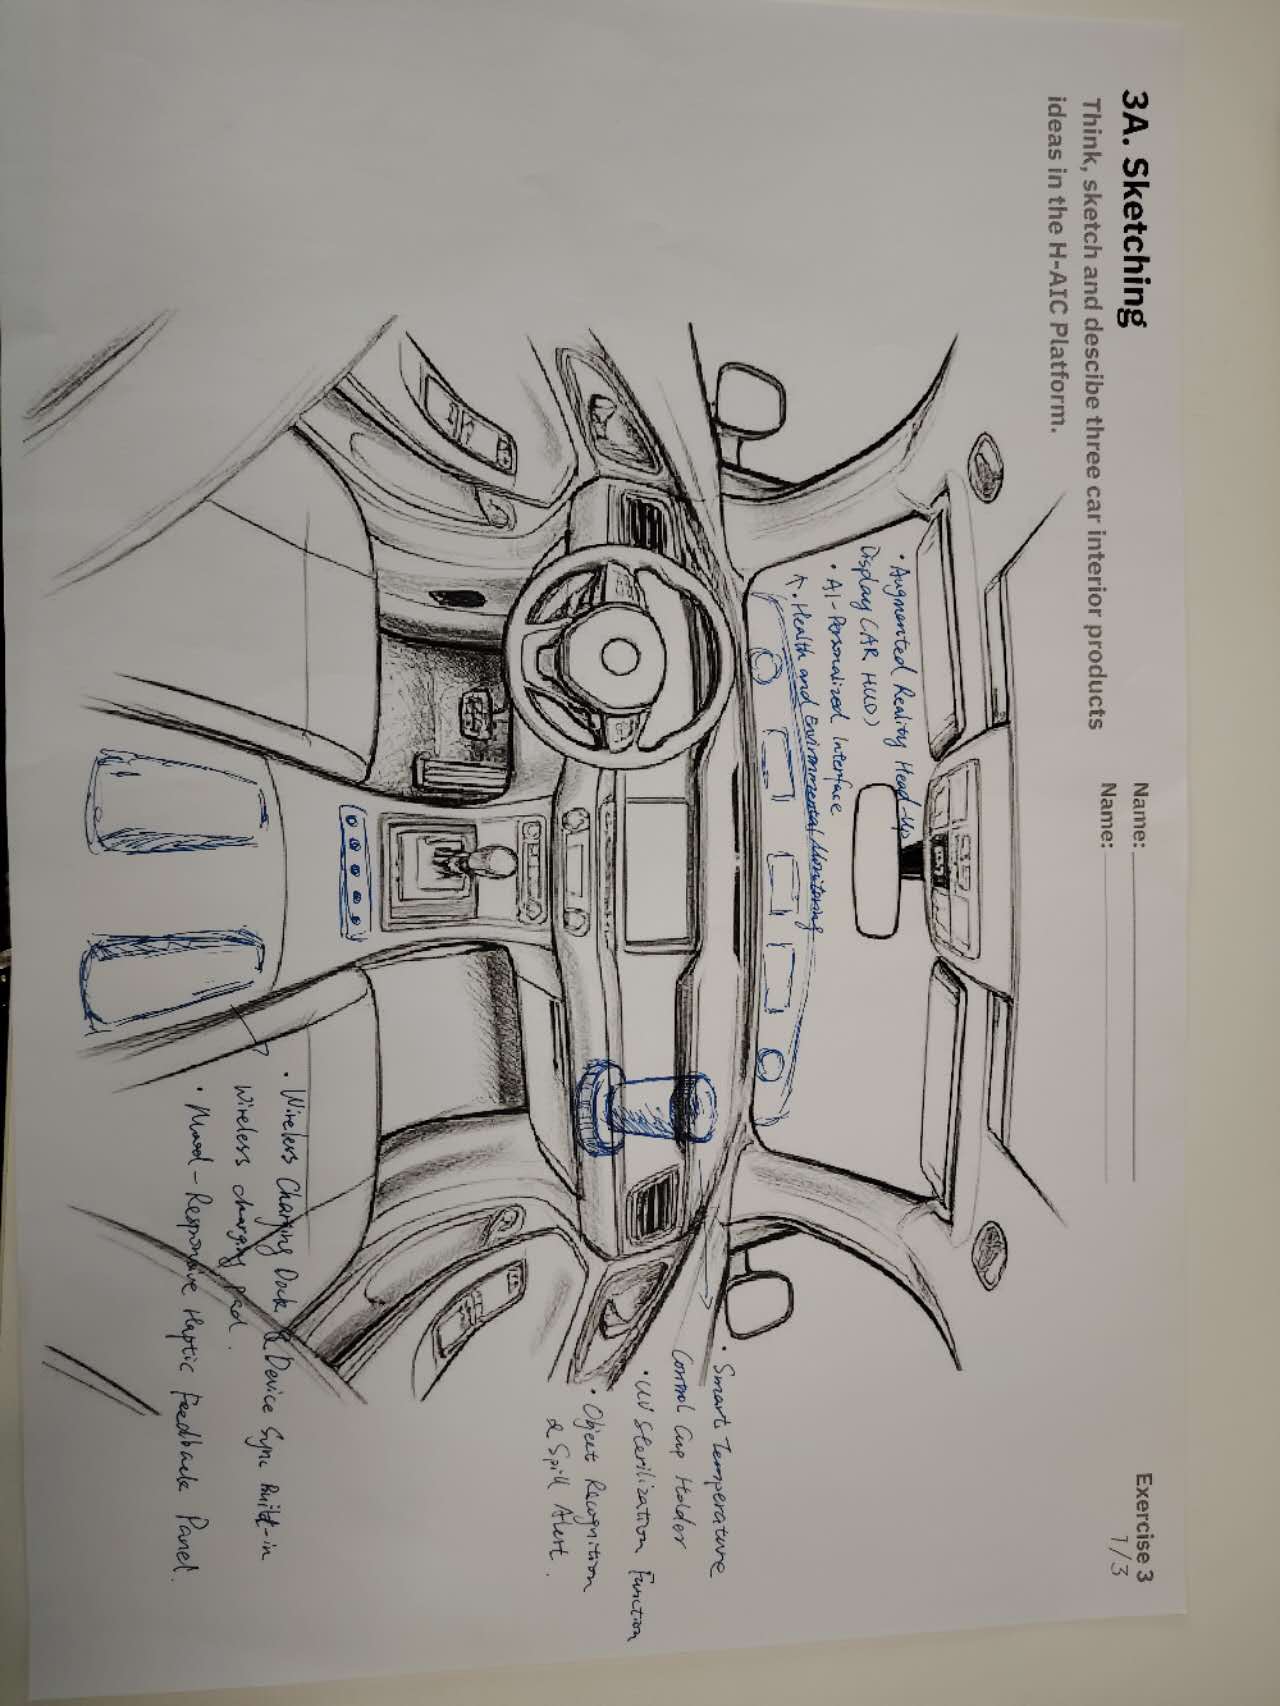 3A. Sketching
Think, sketch and descibe three car interior products
ideas in the H-AIC Platform.
Name:
Name:
Exercise 3
1/3
• Augmented Reality Head-Up
Display (AR HUD)
• AI-Personalized Interface
↑ • Health and Environmental Monitoring
• Smart Temperature
Control Cup Holder
• UV Sterilization Function
• Object Recognition
& Spill Alert.
• Wireless Charging Dock & Device Sync Built-in
Wireless charging pad.
• Mood-Responsive Haptic Feedback Panel.